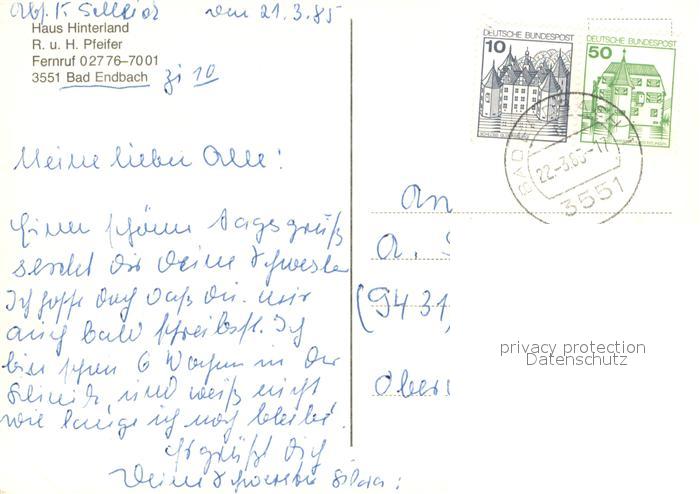 Abs. K. vom 21.3.85
Haus Hinterland
R. u. H. Pfeifer
Fernruf 02776–7001
3551 Bad Endbach Zi 10
Meine lieben
Einen schönen Tagesgruß
sendet dir Deine Schwester
Ich hoffe doch daß du mir
auch bald schreibst. Ich
bin schon 6 Wochen in der
Klinik und weiß nicht
wie lange ich noch bleibe.
Es grüßt Dich
Deine Schwester
10 DEUTSCHE BUNDESPOST
50 DEUTSCHE BUNDESPOST
22.-3.85-17
3551
An
A.
(9431,
Ober
privacy protection
Datenschutz